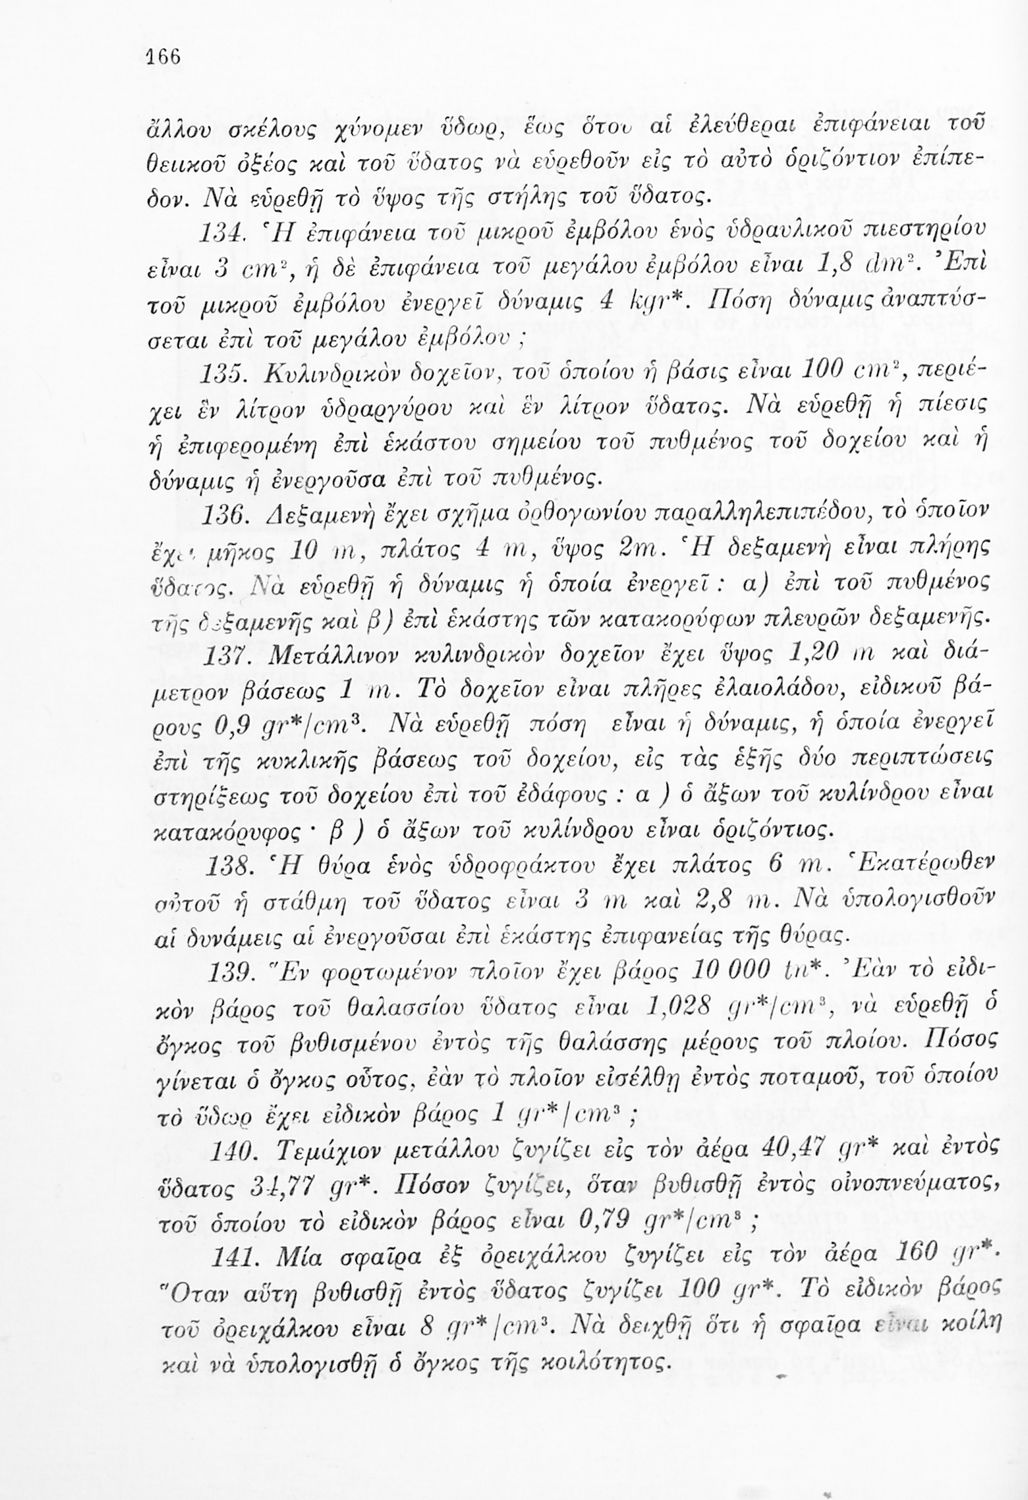 166
ἄλλου σκέλους χύνομεν ὕδωρ, ἕως ὅτου αἱ ἐλεύθεραι ἐπιφάνειαι τοῦ
θειικοῦ ὀξέος καὶ τοῦ ὕδατος νὰ εὑρεθοῦν εἰς τὸ αὐτὸ ὁριζόντιον ἐπίπε-
δον. Νὰ εὑρεθῇ τὸ ὕψος τῆς στήλης τοῦ ὕδατος.
134. Ἡ ἐπιφάνεια τοῦ μικροῦ ἐμβόλου ἑνὸς ὑδραυλικοῦ πιεστηρίου
εἶναι 3 cm², ἡ δὲ ἐπιφάνεια τοῦ μεγάλου ἐμβόλου εἶναι 1,8 dm². Ἐπὶ
τοῦ μικροῦ ἐμβόλου ἐνεργεῖ δύναμις 4 kgr*. Πόση δύναμις ἀναπτύσ-
σεται ἐπὶ τοῦ μεγάλου ἐμβόλου ;
135. Κυλινδρικὸν δοχεῖον, τοῦ ὁποίου ἡ βάσις εἶναι 100 cm², περιέ-
χει ἓν λίτρον ὑδραργύρου καὶ ἓν λίτρον ὕδατος. Νὰ εὑρεθῇ ἡ πίεσις
ἡ ἐπιφερομένη ἐπὶ ἑκάστου σημείου τοῦ πυθμένος τοῦ δοχείου καὶ ἡ
δύναμις ἡ ἐνεργοῦσα ἐπὶ τοῦ πυθμένος.
136. Δεξαμενὴ ἔχει σχῆμα ὀρθογωνίου παραλληλεπιπέδου, τὸ ὁποῖον
ἔχει μῆκος 10 m, πλάτος 4 m, ὕψος 2m. Ἡ δεξαμενὴ εἶναι πλήρης
ὕδατος. Νὰ εὑρεθῇ ἡ δύναμις ἡ ὁποία ἐνεργεῖ : α) ἐπὶ τοῦ πυθμένος
τῆς δεξαμενῆς καὶ β) ἐπὶ ἑκάστης τῶν κατακορύφων πλευρῶν δεξαμενῆς.
137. Μετάλλινον κυλινδρικὸν δοχεῖον ἔχει ὕψος 1,20 m καὶ διά-
μετρον βάσεως 1 m. Τὸ δοχεῖον εἶναι πλῆρες ἐλαιολάδου, εἰδικοῦ βά-
ρους 0,9 gr*/cm³. Νὰ εὑρεθῇ πόση εἶναι ἡ δύναμις, ἡ ὁποία ἐνεργεῖ
ἐπὶ τῆς κυκλικῆς βάσεως τοῦ δοχείου, εἰς τὰς ἑξῆς δύο περιπτώσεις
στηρίξεως τοῦ δοχείου ἐπὶ τοῦ ἐδάφους : α ) ὁ ἄξων τοῦ κυλίνδρου εἶναι
κατακόρυφος · β ) ὁ ἄξων τοῦ κυλίνδρου εἶναι ὁριζόντιος.
138. Ἡ θύρα ἑνὸς ὑδροφράκτου ἔχει πλάτος 6 m. Ἑκατέρωθεν
αὐτοῦ ἡ στάθμη τοῦ ὕδατος εἶναι 3 m καὶ 2,8 m. Νὰ ὑπολογισθοῦν
αἱ δυνάμεις αἱ ἐνεργοῦσαι ἐπὶ ἑκάστης ἐπιφανείας τῆς θύρας.
139. Ἓν φορτωμένον πλοῖον ἔχει βάρος 10 000 tn*. Ἐὰν τὸ εἰδι-
κὸν βάρος τοῦ θαλασσίου ὕδατος εἶναι 1,028 gr*/cm³, νὰ εὑρεθῇ ὁ
ὄγκος τοῦ βυθισμένου ἐντὸς τῆς θαλάσσης μέρους τοῦ πλοίου. Πόσος
γίνεται ὁ ὄγκος οὗτος, ἐὰν τὸ πλοῖον εἰσέλθῃ ἐντὸς ποταμοῦ, τοῦ ὁποίου
τὸ ὕδωρ ἔχει εἰδικὸν βάρος 1 gr*/cm³ ;
140. Τεμάχιον μετάλλου ζυγίζει εἰς τὸν ἀέρα 40,47 gr* καὶ ἐντὸς
ὕδατος 34,77 gr*. Πόσον ζυγίζει, ὅταν βυθισθῇ ἐντὸς οἰνοπνεύματος,
τοῦ ὁποίου τὸ εἰδικὸν βάρος εἶναι 0,79 gr*/cm³ ;
141. Μία σφαῖρα ἐξ ὀρειχάλκου ζυγίζει εἰς τὸν ἀέρα 160 gr*.
Ὅταν αὕτη βυθισθῇ ἐντὸς ὕδατος ζυγίζει 100 gr*. Τὸ εἰδικὸν βάρος
τοῦ ὀρειχάλκου εἶναι 8 gr*/cm³. Νὰ δειχθῇ ὅτι ἡ σφαῖρα εἶναι κοίλη
καὶ νὰ ὑπολογισθῇ ὁ ὄγκος τῆς κοιλότητος.